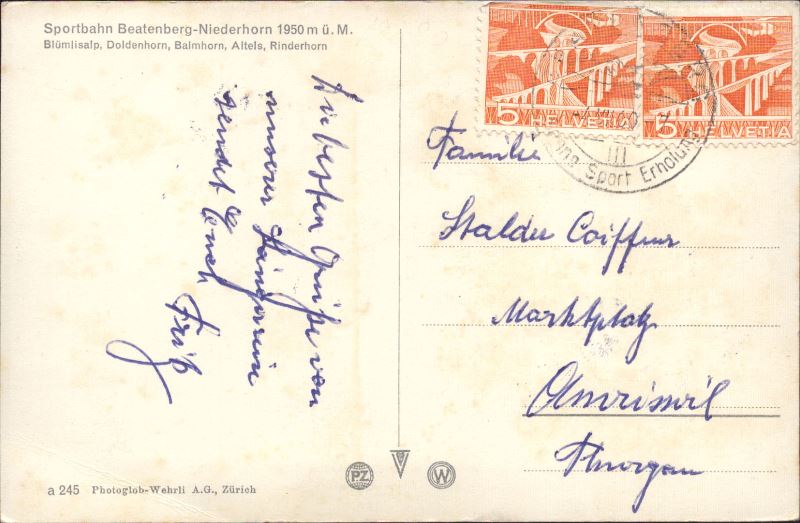 Sportbahn Beatenberg-Niederhorn 1950 m ü. M.
Blümlisalp, Doldenhorn, Balmhorn, Altels, Rinderhorn
Die besten Grüße von
unserer
sendet Euch
Fritz
5 HELVETIA
5 HELVETIA
III
Sport Erholung
Familie
Stalder Coiffeur
Marktplatz
Amriswil
Thurgau
a 245 Photoglob-Wehrli A.G., Zürich
PZ
W